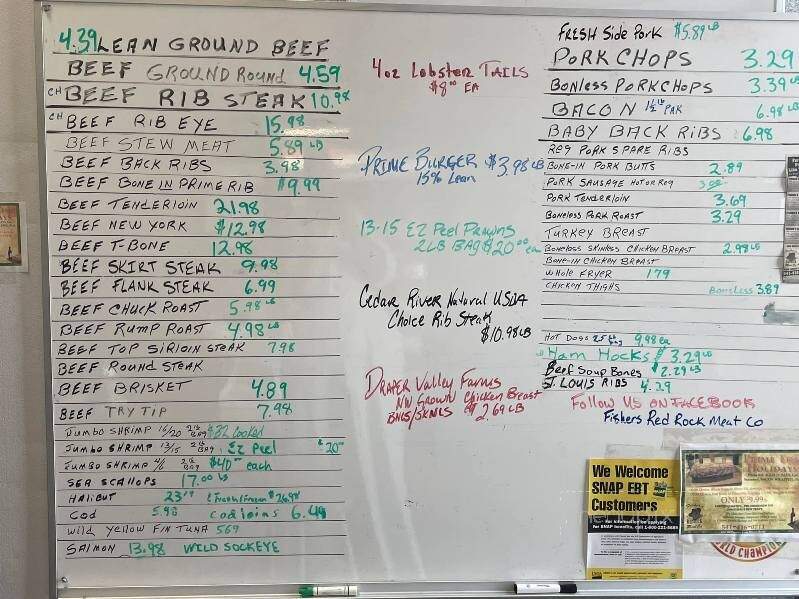 4.39 LEAN GROUND BEEF
BEEF GROUND ROUND 4.59
CH BEEF RIB STEAK 10.98
CH BEEF RIB EYE 15.98
BEEF STEW MEAT 5.89 LB
BEEF BACK RIBS 3.98
BEEF BONE IN PRIME RIB $9.99
BEEF TENDERLOIN 21.98
BEEF NEW YORK $12.98
BEEF T-BONE 12.98
BEEF SKIRT STEAK 9.98
BEEF FLANK STEAK 6.99
BEEF CHUCK ROAST 5.98 LB
BEEF RUMP ROAST 4.98 LB
BEEF TOP SIRLOIN STEAK 7.98
BEEF ROUND STEAK
BEEF BRISKET 4.89
BEEF TRY TIP 7.98
JUMBO SHRIMP 16/20 2 LB BAG $32 Cooked
JUMBO SHRIMP 13/15 2 LB BAG EZ Peel $20.00
JUMBO SHRIMP 4/6 2 LB BAG $40.00 each
SEA SCALLOPS 17.00 LB
HALIBUT
COD 5.98 Cod loins 6.49
WILD YELLOW FIN TUNA 569
SALMON 13.98 WILD SOCKEYE
4oz Lobster TAILS
$8.00 EA
PRIME BURGER $3.98 LB
15% Lean
13-15 EZ Peel Prawns
2LB BAG $20.00 ea
Cedar River Natural USDA
Choice Rib Steak
$10.98 LB
DRAPER Valley Farms
NW Grown Chicken Breast
BNLS/SKNLS $2.69 LB
FRESH Side Pork $5.89 LB
PORK CHOPS 3.29
BONLESS PORKCHOPS 3.39 LB
BACON 1½ lb PAK 6.98 LB
BABY BACK RIBS 6.98
REG PORK SPARE RIBS
BONE-IN PORK BUTTS 2.89
PORK SAUSAGE HOT OR REG
PORK TENDERLOIN 3.69
BONELESS PORK ROAST 3.29
TURKEY BREAST
BONELESS SKINLESS CHICKEN BREAST 2.98 LB
BONE-IN CHICKEN BREAST
WHOLE FRYER 179
CHICKEN THIGHS BONELESS 3.89
HOT DOGS 2.5 LB bag 9.98 ea
Ham Hocks $3.29 LB
Beef Soup Bones $2.29 LB
ST. LOUIS RIBS 4.29
FOLLOW US ON FACEBOOK
Fishers Red Rock Meat Co
We Welcome
SNAP EBT
Customers
For information on applying
for SNAP benefits, call 1-800-221-5689
ONLY 9.99